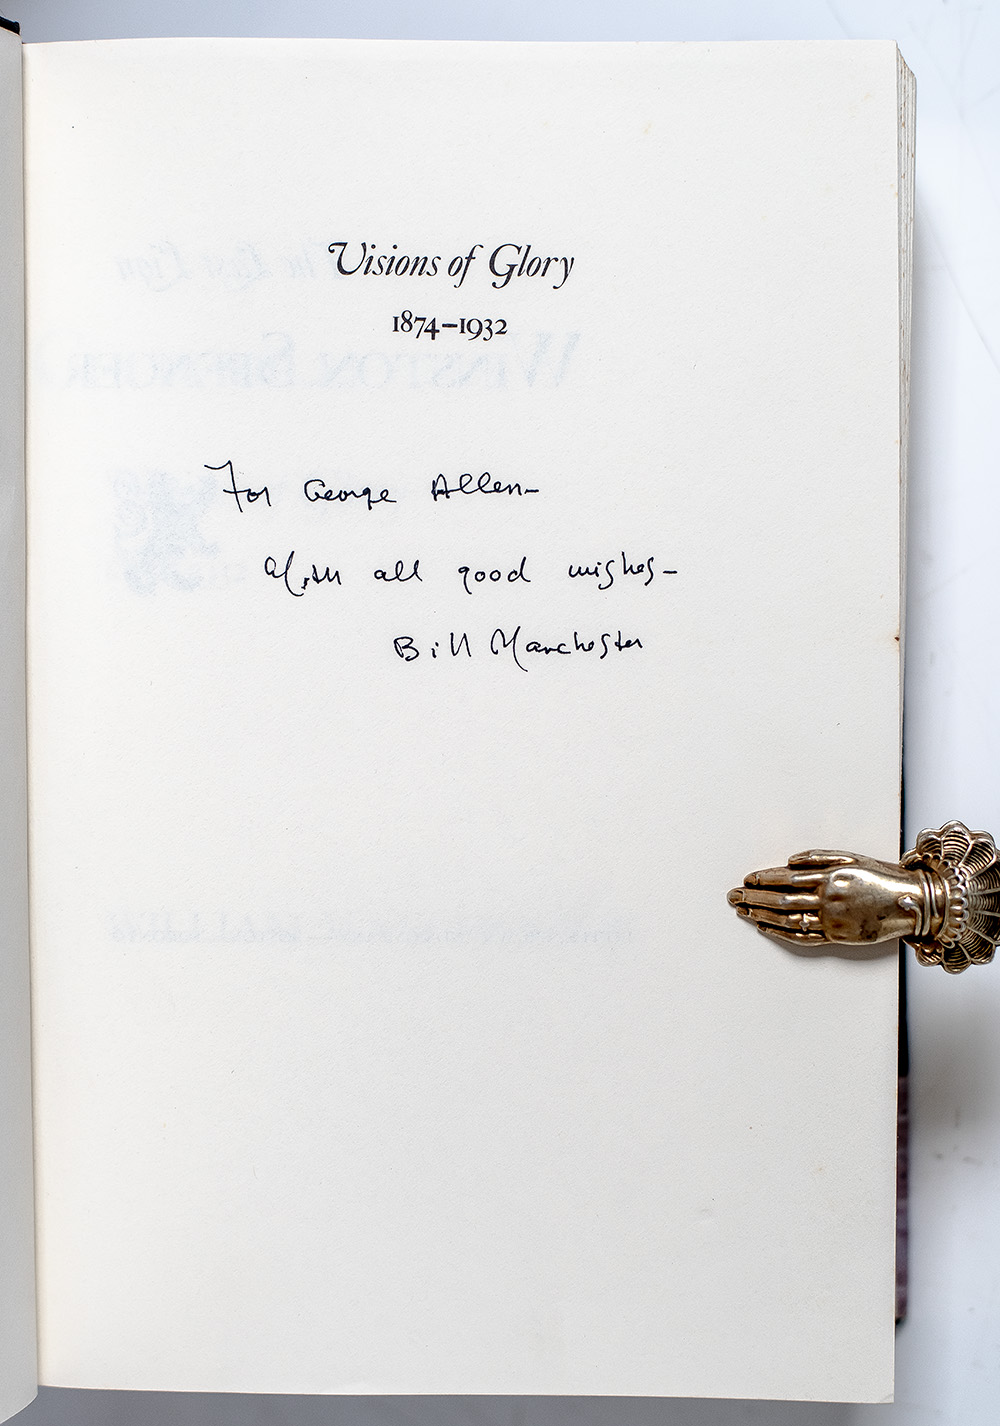 Visions of Glory
1874–1932
For George Allen–
With all good wishes–
Bill Manchester
WINSTON SPENCER